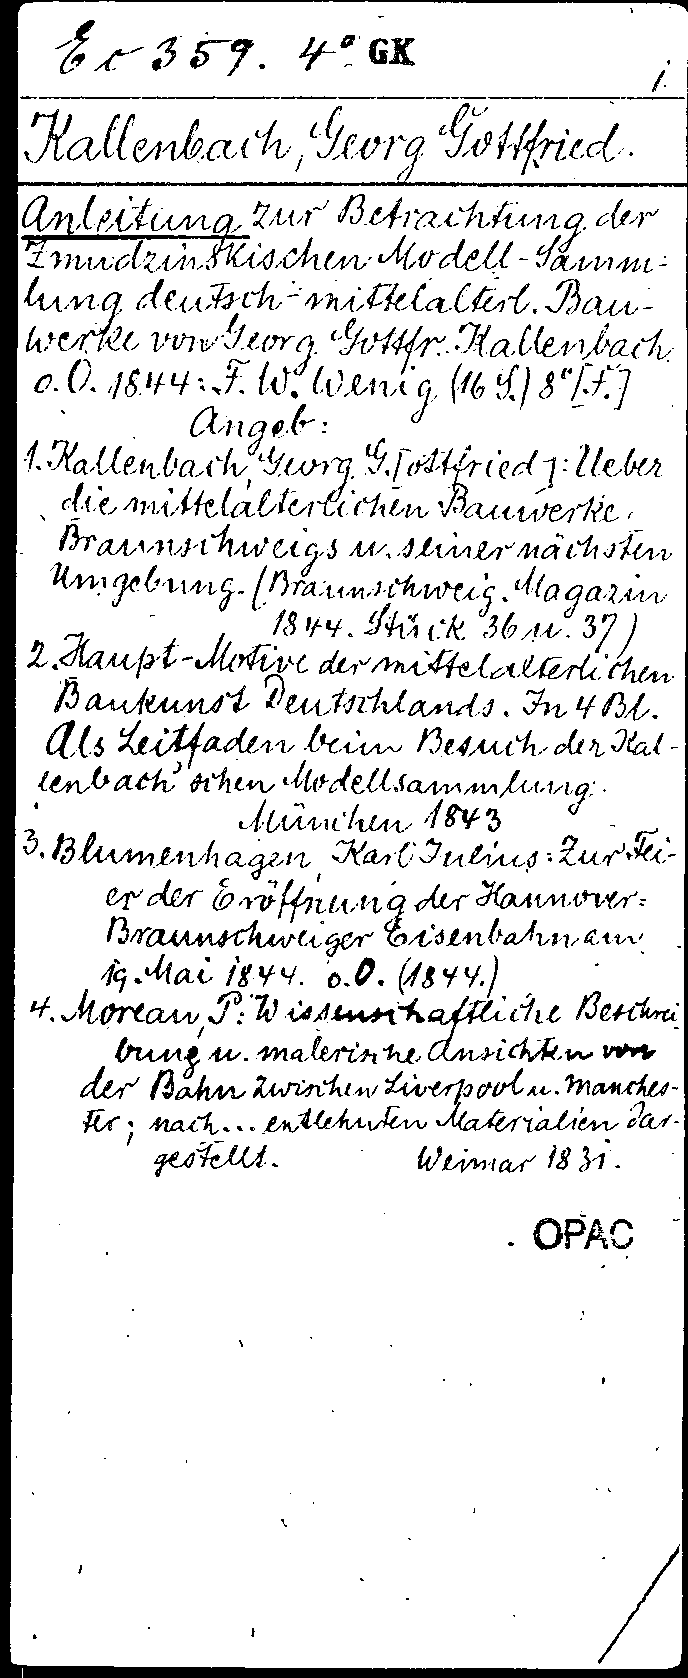 Ec 359. 4° GK
1.
Kallenbach, Georg Gottfried.
Anleitung zur Betrachtung der
Zmudzinskischen Modell-Samm-
lung deutsch-mittelalterl. Bau-
werke von Georg Gottfr. Kallenbach
o. O. 1844: F. W. Wenig (16 S.) 8° [f.]
Angeb:
1. Kallenbach, Georg G. [ottfried]: Ueber
die mittelalterlichen Bauwerke
Braunschweigs u. seiner nächsten
Umgebung. (Braunschweig. Magazin
1844. Stück 36 u. 37)
2. Haupt-Motive der mittelalterlichen
Baukunst Deutschlands. In 4 Bl.
Als Leitfaden beim Besuch der Kal-
lenbach'schen Modellsammlung.
München 1843
3. Blumenhagen, Karl Julius: Zur Fei-
er der Eröffnung der Hannover-
Braunschweiger Eisenbahn am
19. Mai 1844. o. O. (1844.)
4. Moreau, P: Wissenschaftliche Beschrei
bung u. malerische Ansichten von
der Bahn zwischen Liverpool u. Manches-
ter; nach... entlehnten Materialien dar-
gestellt. Weimar 1831.
OPAC